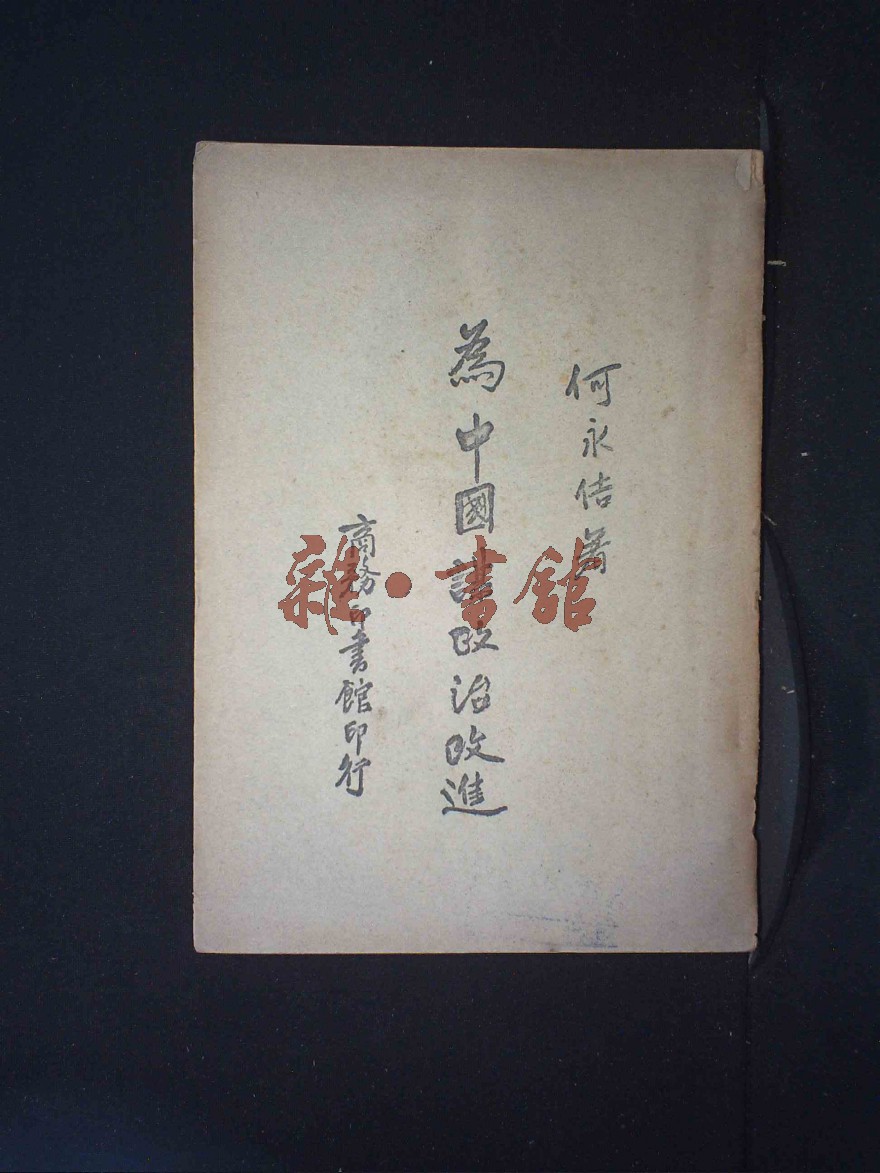 何永佶著
為中國謀政治改進
商務印書館印行
雜·書館